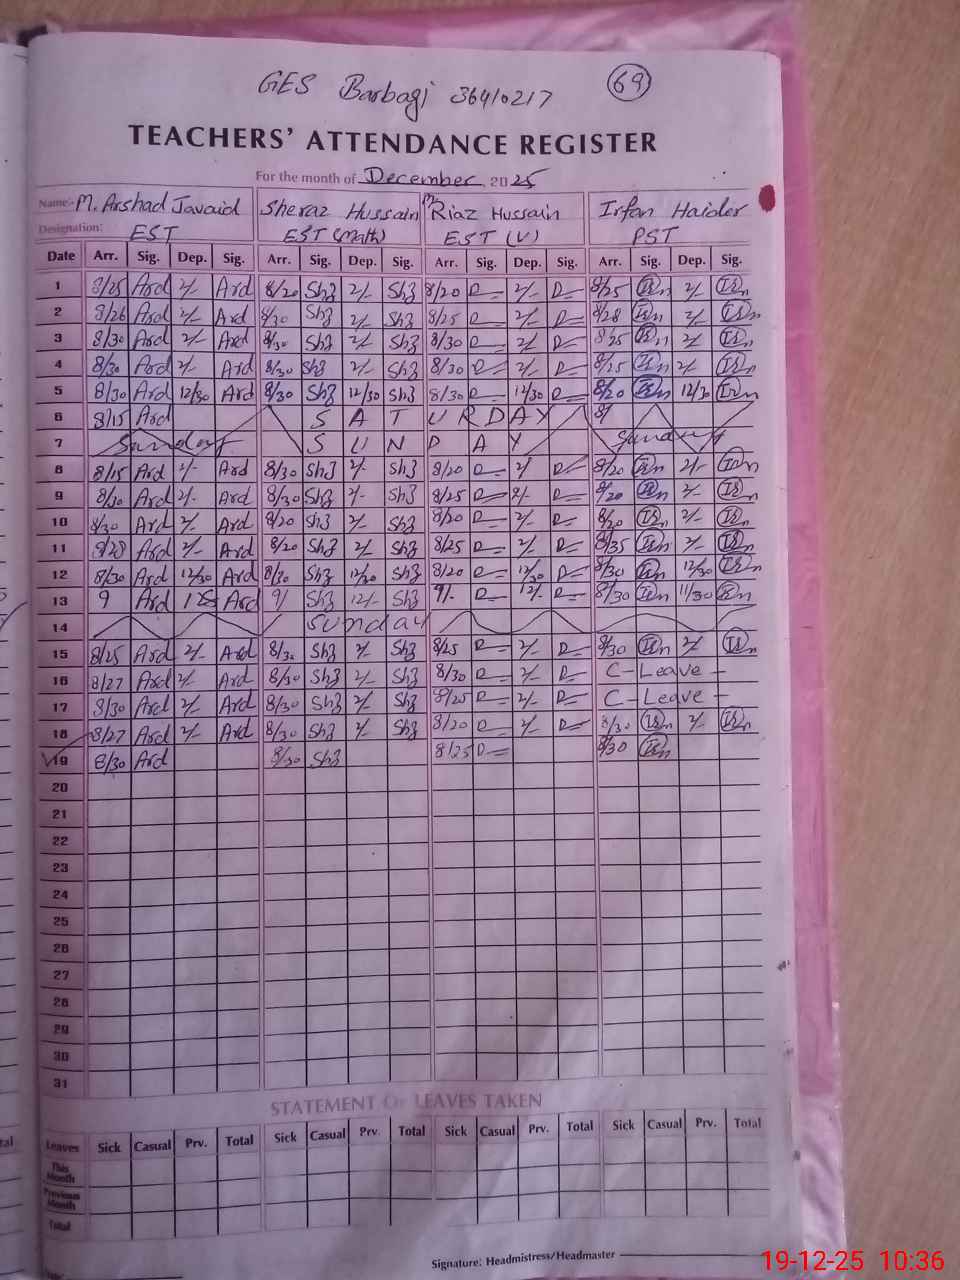 GES Barbagi 36410217 69
TEACHERS' ATTENDANCE REGISTER
For the month of December, 2025
Name:- M. Arshad Javaid Sheraz Hussain M. Riaz Hussain Irfan Haider
Designation: EST EST (Math) EST (U) PST
Date Arr. Sig. Dep. Sig. Arr. Sig. Dep. Sig. Arr. Sig. Dep. Sig. Arr. Sig. Dep. Sig.
1 8/25 Ard 2/- Ard 8/20 Sh3 2/- Sh3 8/20 2/- 8/25 2/-
2 8/26 Ard 2/- Ard 8/30 Sh3 2/- Sh3 8/25 2/- 8/28 2/-
3 8/30 Ard 2/- Ard 8/30 Sh3 2/- Sh3 8/30 2/- 8/25 2/
4 8/30 Ard 2/- Ard 8/30 Sh3 2/- Sh3 8/30 2/- 8/25 2/-
5 8/30 Ard 12/30 Ard 8/30 Sh3 12/30 Sh3 8/30 12/30 8/20 12/30
6 8/15 Ard SATURDAY 8/
7 Sunday SUNDAY Sunday
8 8/15 Ard 2/- Ard 8/30 Sh3 2/- Sh3 8/20 2/ 8/20 2/-
9 8/30 Ard 2/- Ard 8/30 Sh3 2/- Sh3 8/25 2/- 8/20 2/-
10 8/30 Ard 2/- Ard 8/20 Sh3 2/- Sh3 8/20 2/- 8/20 2/-
11 8/28 Ard 2/- Ard 8/20 Sh3 2/- Sh3 8/25 2/- 8/35 2/-
12 8/30 Ard 12/30 Ard 8/30 Sh3 12/30 Sh3 8/20 12/30 8/30 12/30
13 9 Ard Ard 9/ Sh3 12/- Sh3 9/- 12/- 8/30 11/30
14 Sunday
15 8/25 Ard 2/- Ard 8/30 Sh3 2/- Sh3 8/25 2/- 8/30 2/
16 8/27 Ard 2/- Ard 8/30 Sh3 2/- Sh3 8/30 2/- C-Leave -
17 8/30 Ard 2/- Ard 8/30 Sh3 2/- Sh3 8/25 2/- C-Leave -
18 8/27 Ard 2/- Ard 8/30 Sh3 2/- Sh3 8/20 2/- 8/30 2/-
19 8/30 Ard 8/30 Sh3 8/25 8/30
20
21
22
23
24
25
26
27
28
29
30
31
STATEMENT OF LEAVES TAKEN
Leaves Sick Casual Prv. Total Sick Casual Prv. Total Sick Casual Prv. Total Sick Casual Prv. Total
This Month
Previous Month
Total
Signature: Headmistress/Headmaster
19-12-25 10:36